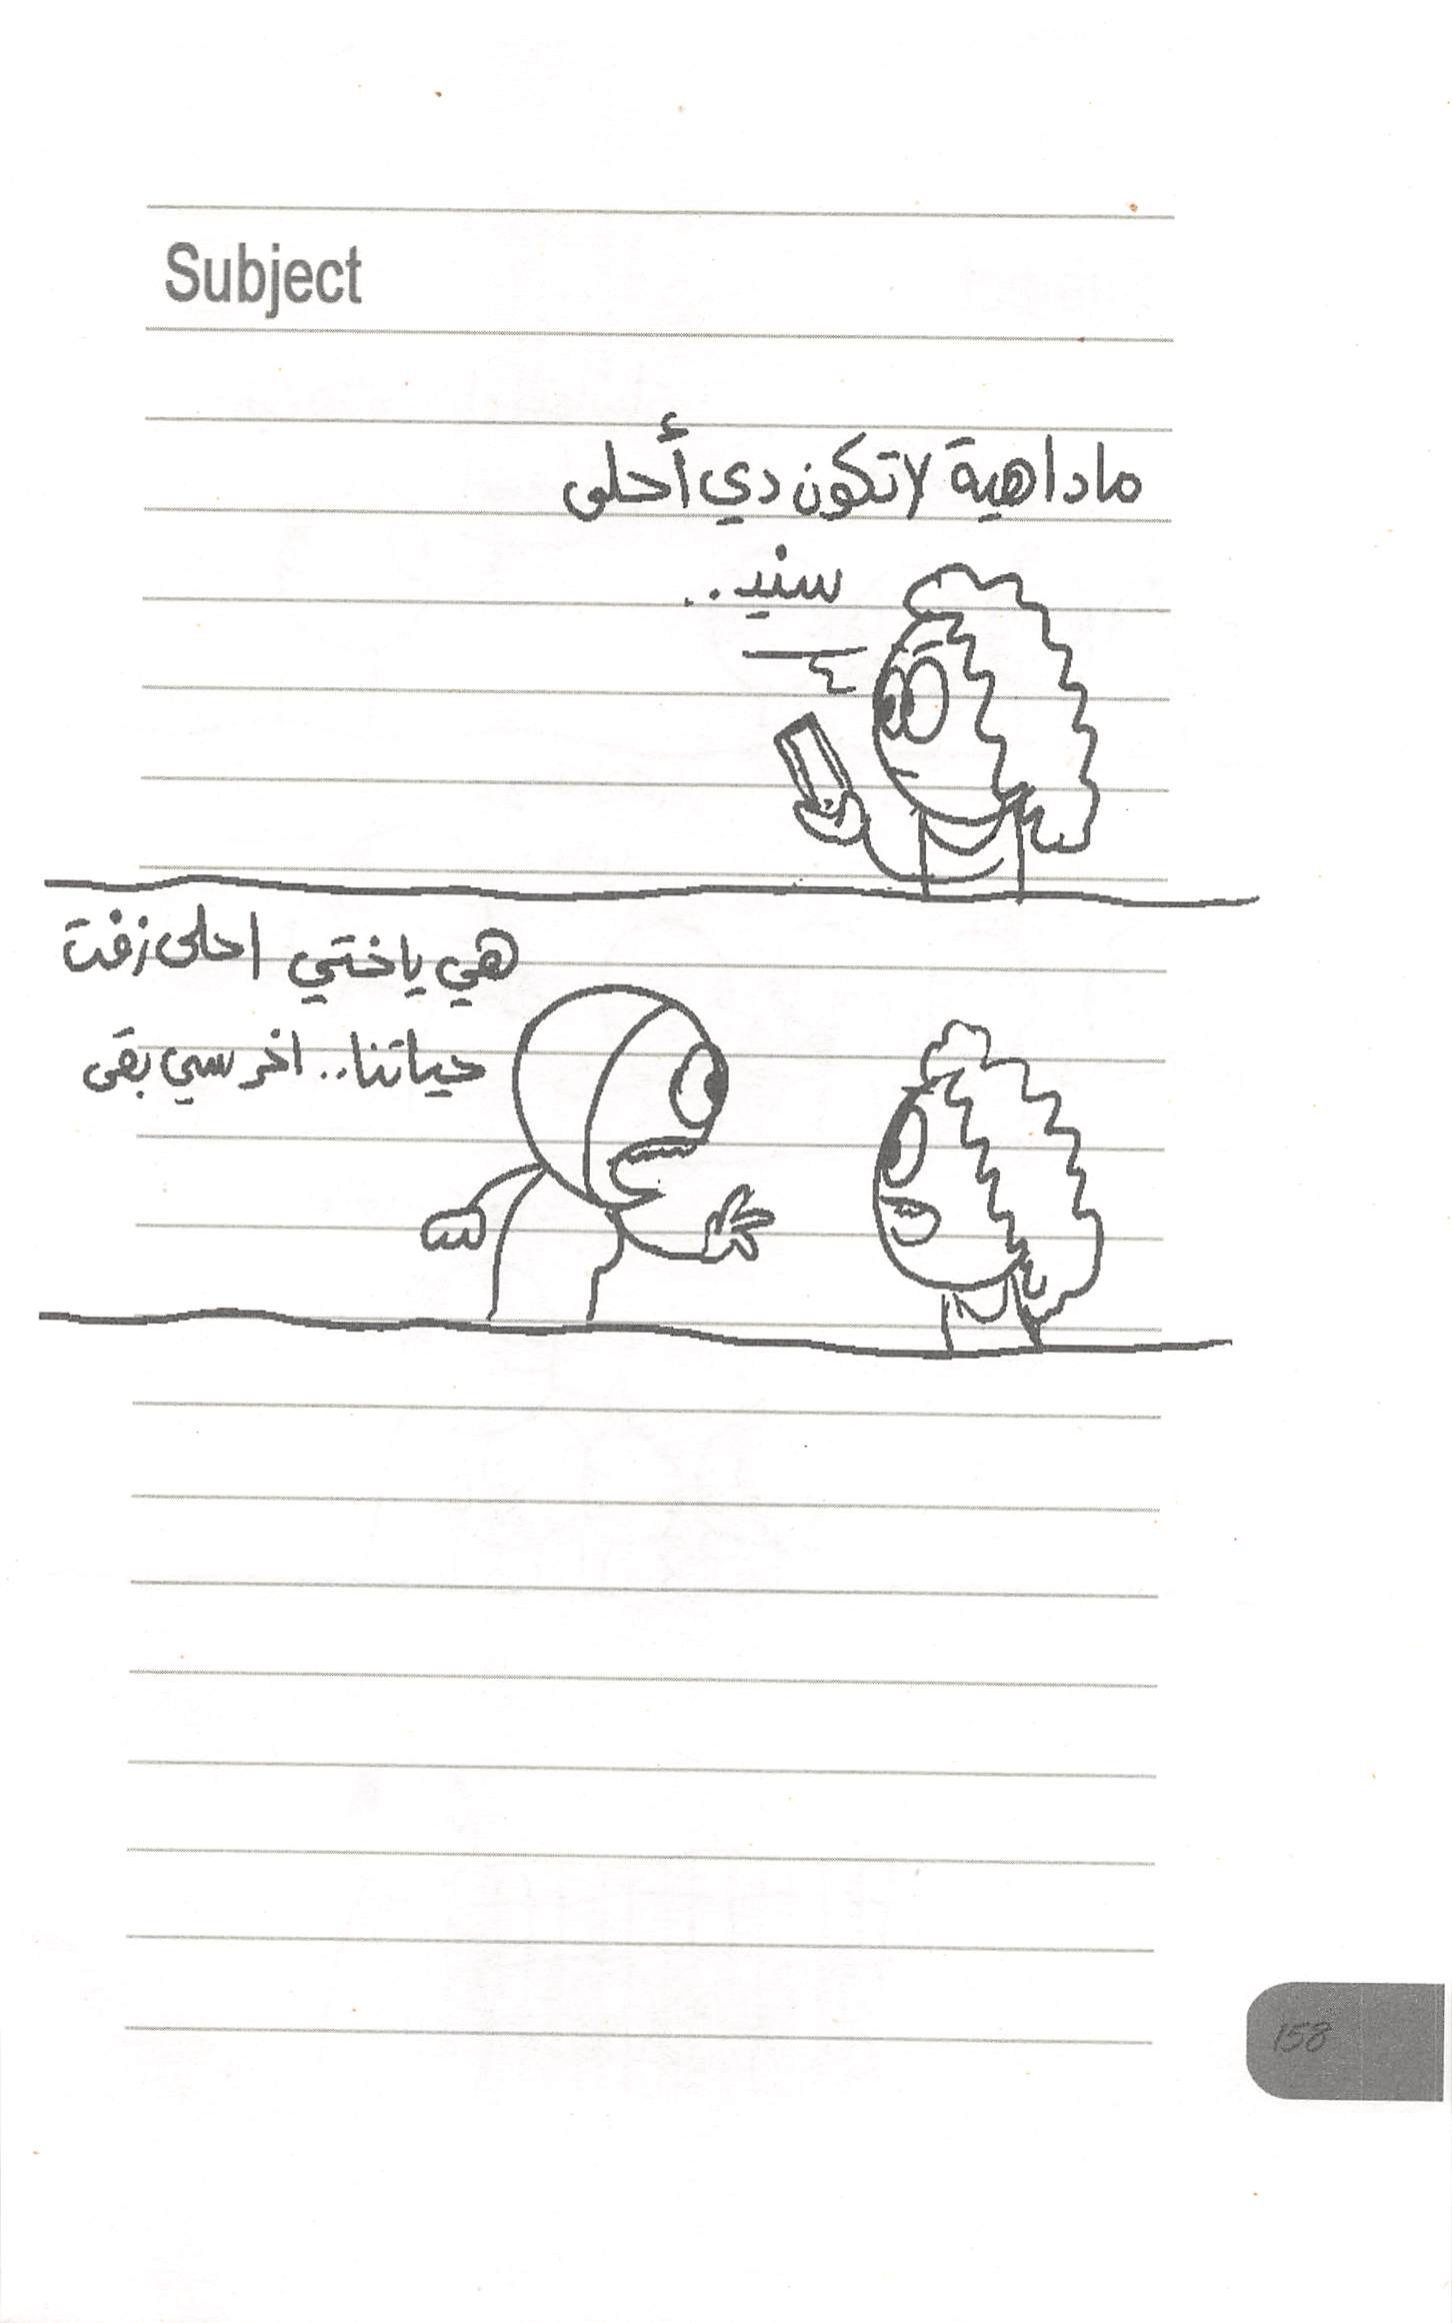 Subject
ماداهية لاتكون دي أحلى
سنيد..
هي ياختي احلى زفت
حياتنا.. اخرسي بقى
158